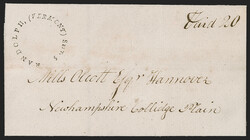 RANDOLPH, (VERMONT)
Paid 20
Mills Olcott Esqr Hannover
Newhampshire Collidge Plain